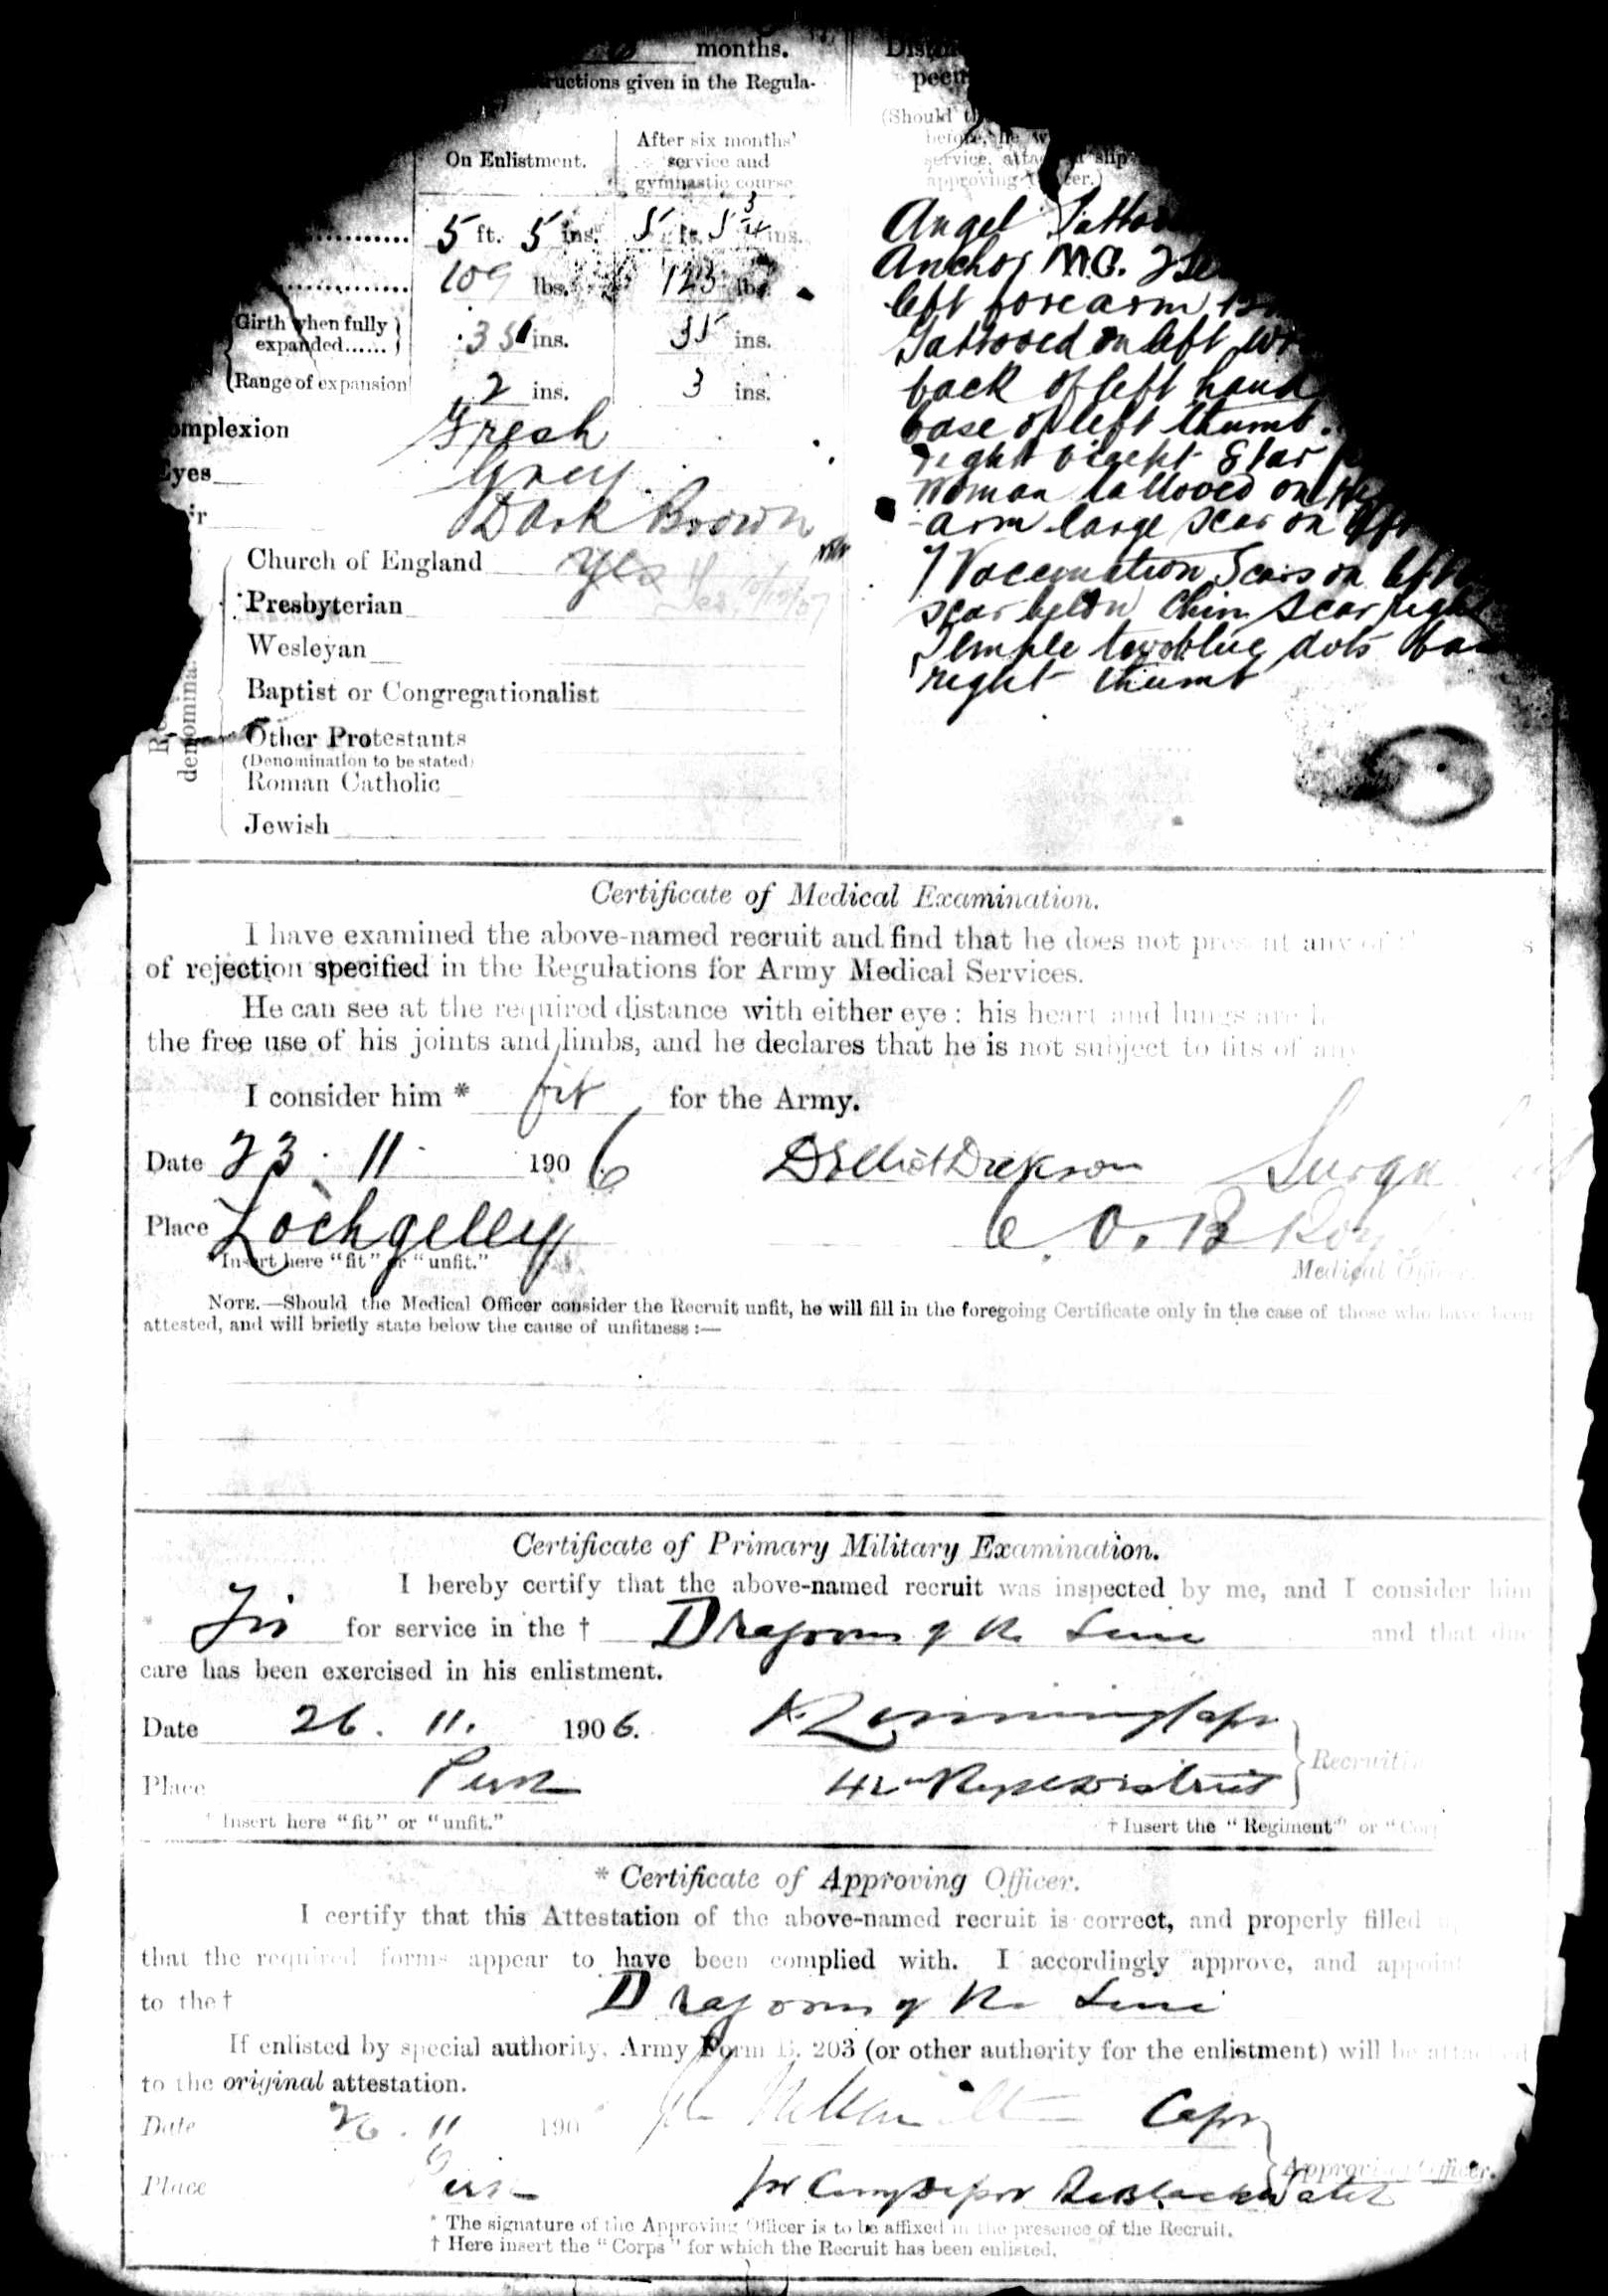 months.
ructions given in the Regula-
On Enlistment.
After six months'
service and
gymnastic course
5 ft. 5 ins. 5 ft. 5 3/4 ins.
109 lbs. 123 lbs.
Girth when fully
expanded...... 35 ins. 35 ins.
Range of expansion 2 ins. 3 ins.
omplexion Fresh
Eyes Grey.
ir Dark Brown
denomina.
Church of England yes
Presbyterian Yes 10/12/07
Wesleyan
Baptist or Congregationalist
Other Protestants
(Denomination to be stated)
Roman Catholic
Jewish
pecu
(Should th
before, he w
service, attach a slip
approving Officer.)
Angel Tattoo
Anchor M.C.
left forearm
Tattooed on left
back of left hand
base of left thumb.
right Star
Woman tattooed on
arm large scar on left
7 Vaccination Scars on left
scar below Chin Scar right
Temple two blue dots
right thumb
Certificate of Medical Examination.
I have examined the above-named recruit and find that he does not present any of
of rejection specified in the Regulations for Army Medical Services.
He can see at the required distance with either eye: his heart and lungs are
the free use of his joints and limbs, and he declares that he is not subject to fits of any
I consider him * fit for the Army.
Date 23. 11. 1906 Dickson Surgn
Place Lochgelly
*Insert here "fit" or "unfit."
Medical Officer.
NOTE.—Should the Medical Officer consider the Recruit unfit, he will fill in the foregoing Certificate only in the case of those who have been
attested, and will briefly state below the cause of unfitness:—
Certificate of Primary Military Examination.
I hereby certify that the above-named recruit was inspected by me, and I consider him
* Fit for service in the † Dragoons of the Line and that due
care has been exercised in his enlistment.
Date 26. 11. 1906. Capt
Recruiti
Place Perth 42nd Regtl District
*Insert here "fit" or "unfit."
† Insert the "Regiment" or "Corp
* Certificate of Approving Officer.
I certify that this Attestation of the above-named recruit is correct, and properly filled
that the required forms appear to have been complied with. I accordingly approve, and appoint
to the† Dragoons of the Line
If enlisted by special authority, Army Form B. 203 (or other authority for the enlistment) will be attached
to the original attestation.
Date 26. 11 190 Capt
Approving Officer.
Place Perth for Comg Depot The Black Watch
* The signature of the Approving Officer is to be affixed in the presence of the Recruit.
† Here insert the "Corps" for which the Recruit has been enlisted.